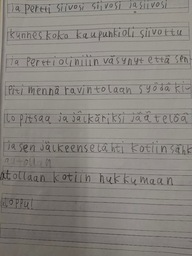 ja pertti siivosi siivosi ja siivosi
kunnes koko kaupunki oli siivottu
ja pertti oli niin väsynyt että sen
piti mennä ravintolaan syömä
lo pitsaa ja jälkäriksi jäätelöä
ja sen jälkeen se lähti kotiin
atollaan kotiin nukkumaan
loppu!